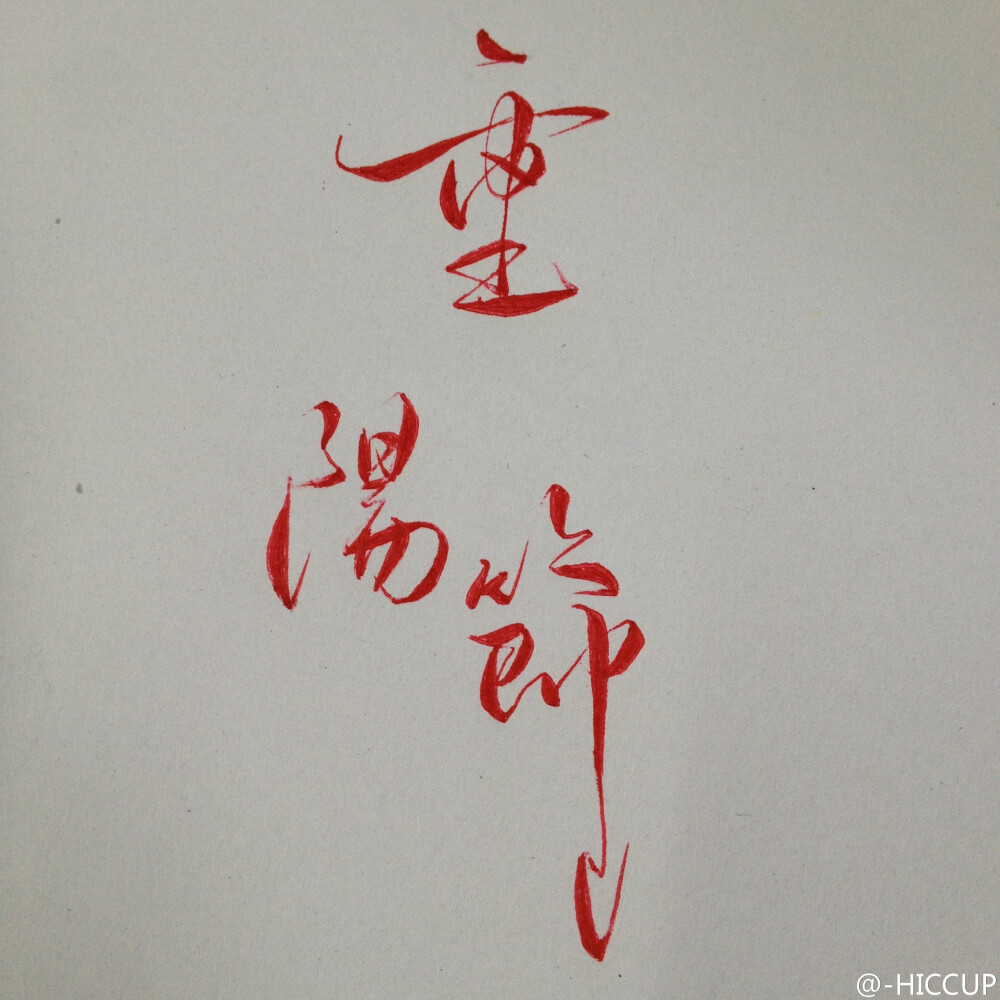 重
陽
節
@-HICCUP